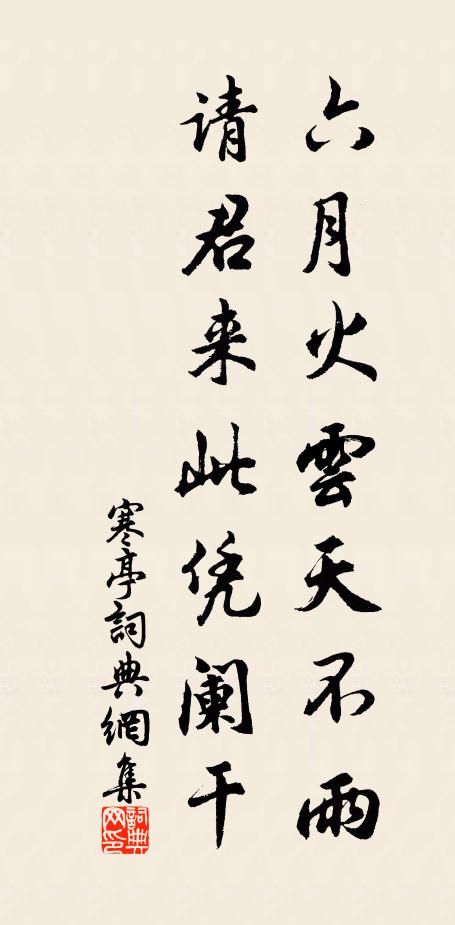 六月火雲天不雨
请君来此凭阑干
寒亭詞典網集
詞典网印